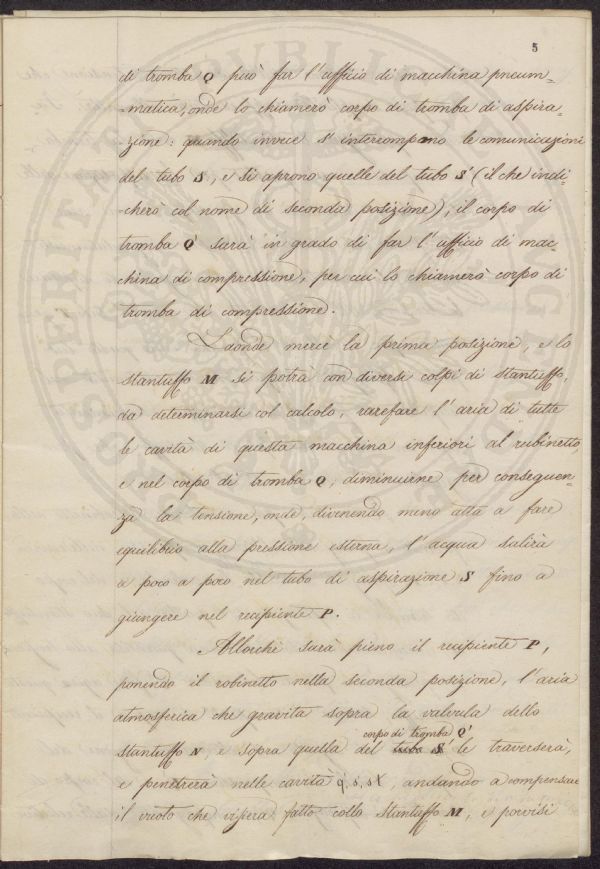 5
di tromba Q può far l'ufficio di macchina pneum-
-matica, onde lo chiamerò corpo di tromba di aspira-
-zione: quando invece s'intercompono le comunicazioni
del tubo S, e si aprono quelle del tubo S' (il che indi-
-cherò col nome di seconda posizione), il corpo di
tromba Q' sarà in grado di far l'ufficio di mac-
china di compressione, per cui lo chiamerò corpo di
tromba di compressione.
Laonde mercè la prima posizione, e lo
stantuffo M si potrà con diversi colpi di stantuffo,
da determinarsi col calcolo, rarefare l'aria di tutte
le cavità di questa macchina inferiori al rubinetto,
e nel corpo di tromba Q, diminuirne per conseguen-
za la tensione, onde, divenendo meno atta a fare
equilibrio alla pressione esterna, l'acqua salirà
a poco a poco nel tubo di aspirazione S fino a
giungere nel recipiente P.
Allorchè sarà pieno il recipiente P,
ponendo il robinetto nella seconda posizione, l'aria
atmosferica che gravita sopra la valvula dello
corpo di tromba Q'
stantuffo N, e sopra quella del tubo S' le traverserà,
e penetrerà nelle cavità andando a compensare
il vuoto che vi s'era fatto collo stantuffo M, e poi si
PROSPERITA REPUBBLICA